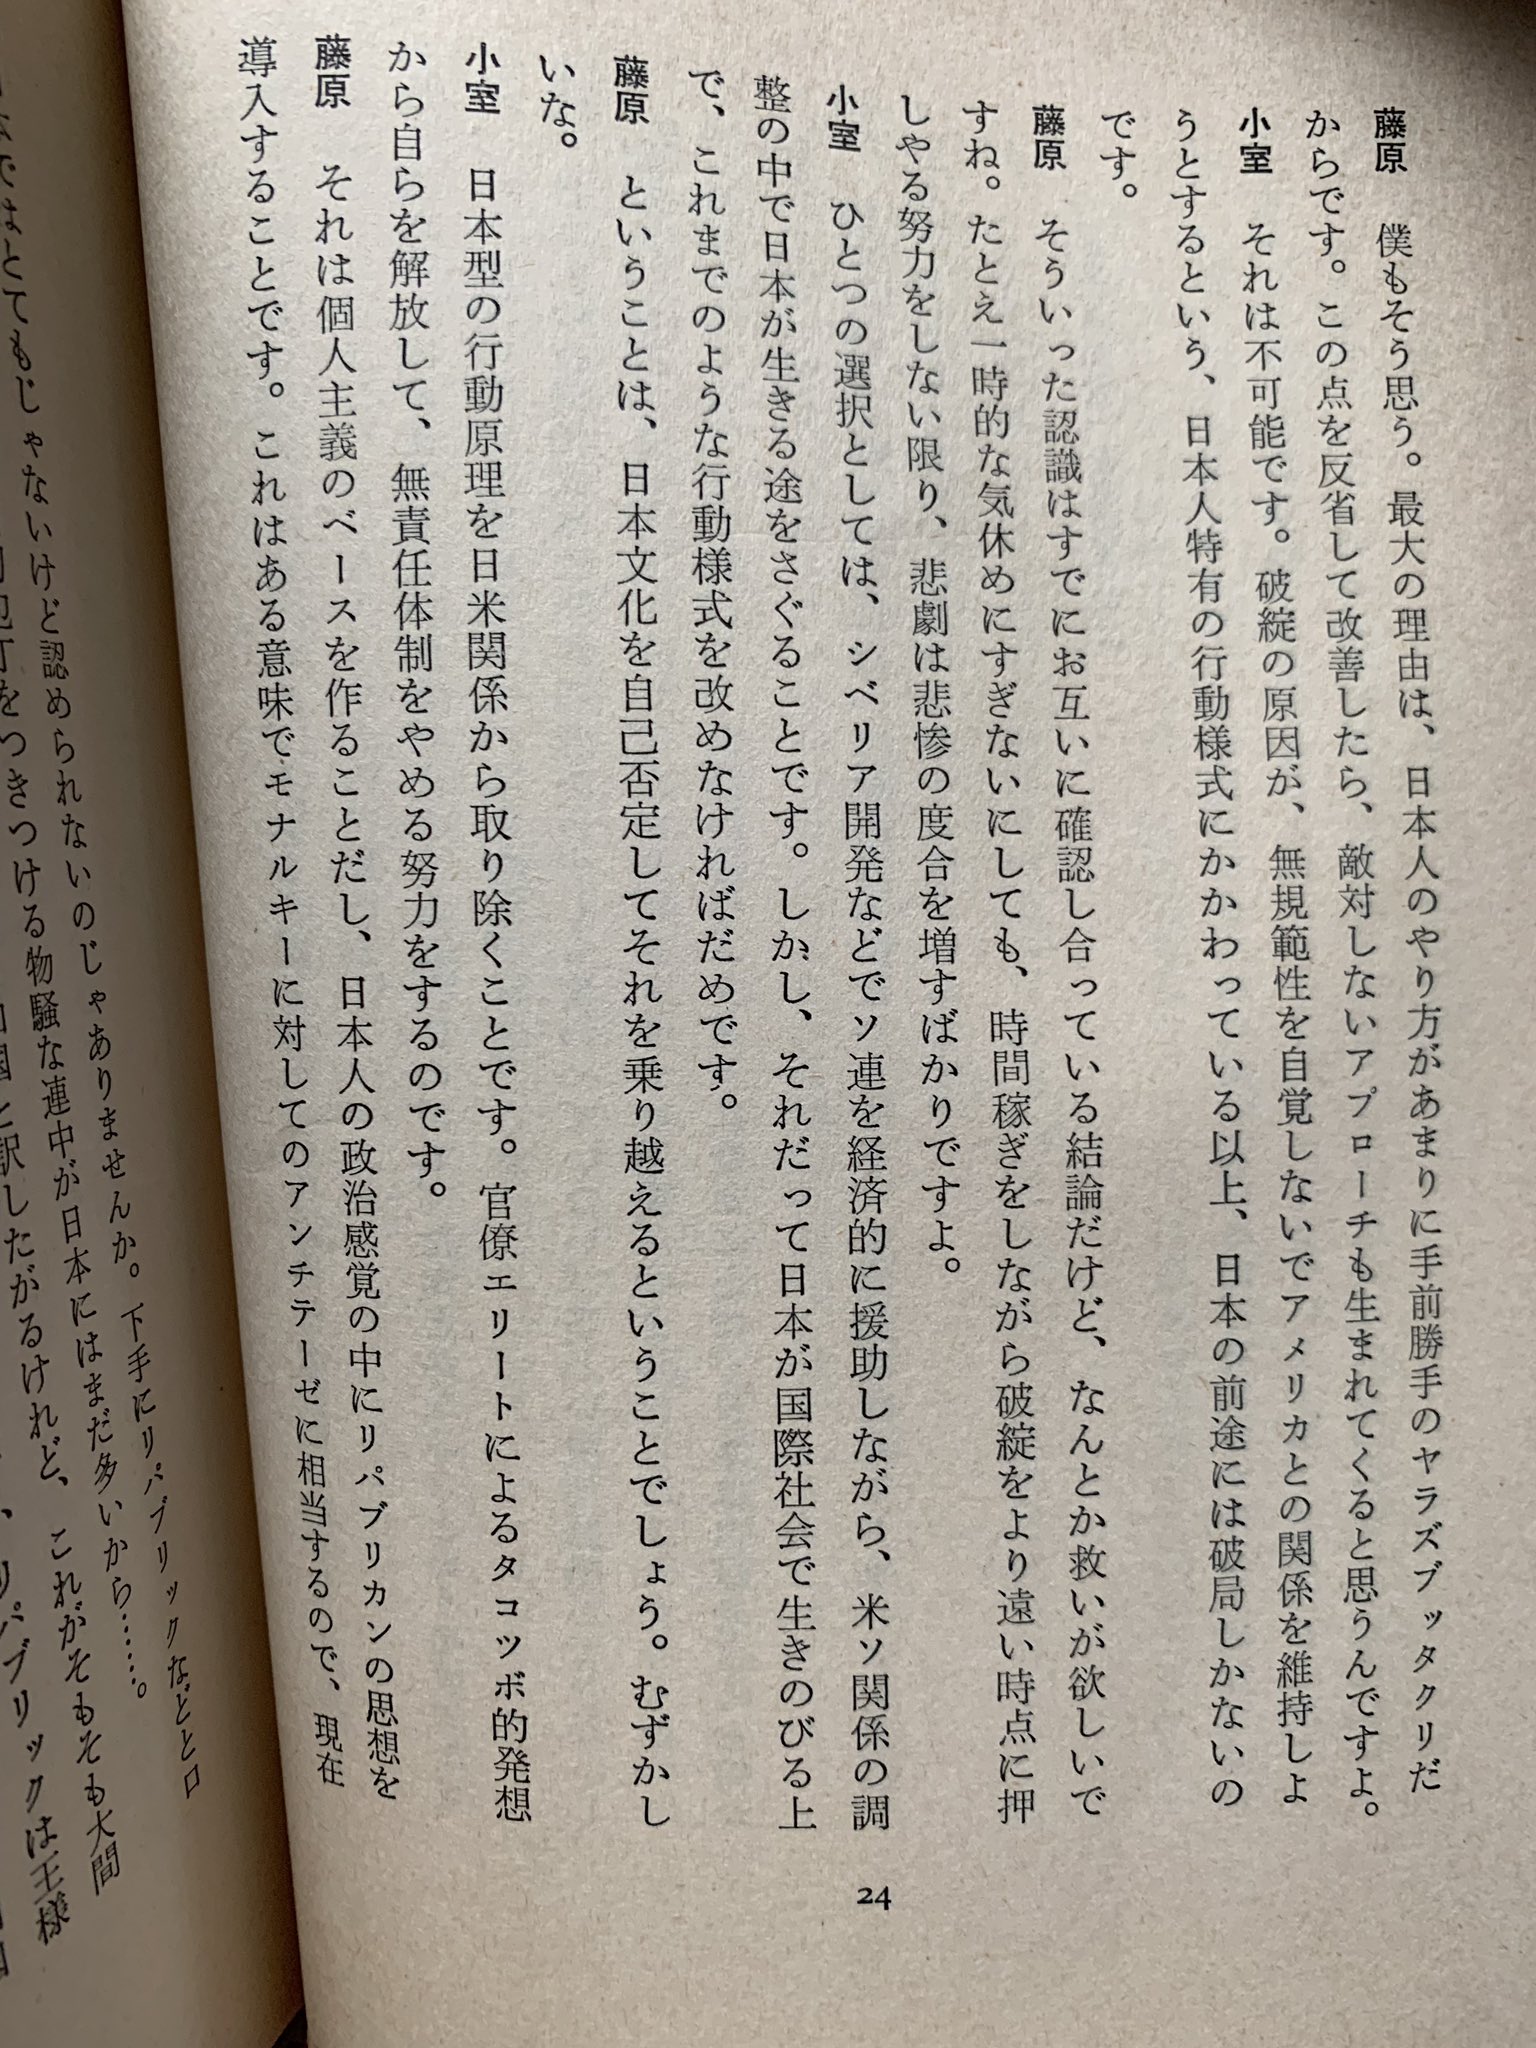 藤原　僕もそう思う。最大の理由は、日本人のやり方があまりに手前勝手のヤラズブッタクリだ
からです。この点を反省して改善したら、敵対しないアプローチも生まれてくると思うんですよ。
小室　それは不可能です。破綻の原因が、無規範性を自覚しないでアメリカとの関係を維持しよ
うとするという、日本人特有の行動様式にかかわっている以上、日本の前途には破局しかないの
です。
藤原　そういった認識はすでにお互いに確認し合っている結論だけど、なんとか救いが欲しいで
すね。たとえ一時的な気休めにすぎないにしても、時間稼ぎをしながら破綻をより遠い時点に押
しやる努力をしない限り、悲劇は悲惨の度合を増すばかりですよ。
小室　ひとつの選択としては、シベリア開発などでソ連を経済的に援助しながら、米ソ関係の調
整の中で日本が生きる途をさぐることです。しかし、それだって日本が国際社会で生きのびる上
で、これまでのような行動様式を改めなければだめです。
藤原　ということは、日本文化を自己否定してそれを乗り越えるということでしょう。むずかし
いな。
小室　日本型の行動原理を日米関係から取り除くことです。官僚エリートによるタコツボ的発想
から自らを解放して、無責任体制をやめる努力をするのです。
藤原　それは個人主義のベースを作ることだし、日本人の政治感覚の中にリパブリカンの思想を
導入することです。これはある意味でモナルキーに対してのアンチテーゼに相当するので、現在
24
ではとてもじゃないけど認められないのじゃありませんか。下手にリパブリックなどと口
をつきつける物騒な連中が日本にはまだ多いから……。
と訳したがるけれど、これがそもそも大間
リパブリックは王様